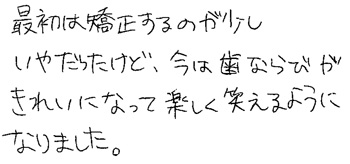 最初は矯正するのが少し
いやだったけど、今は歯ならびが
きれいになって楽しく笑えるように
なりました。